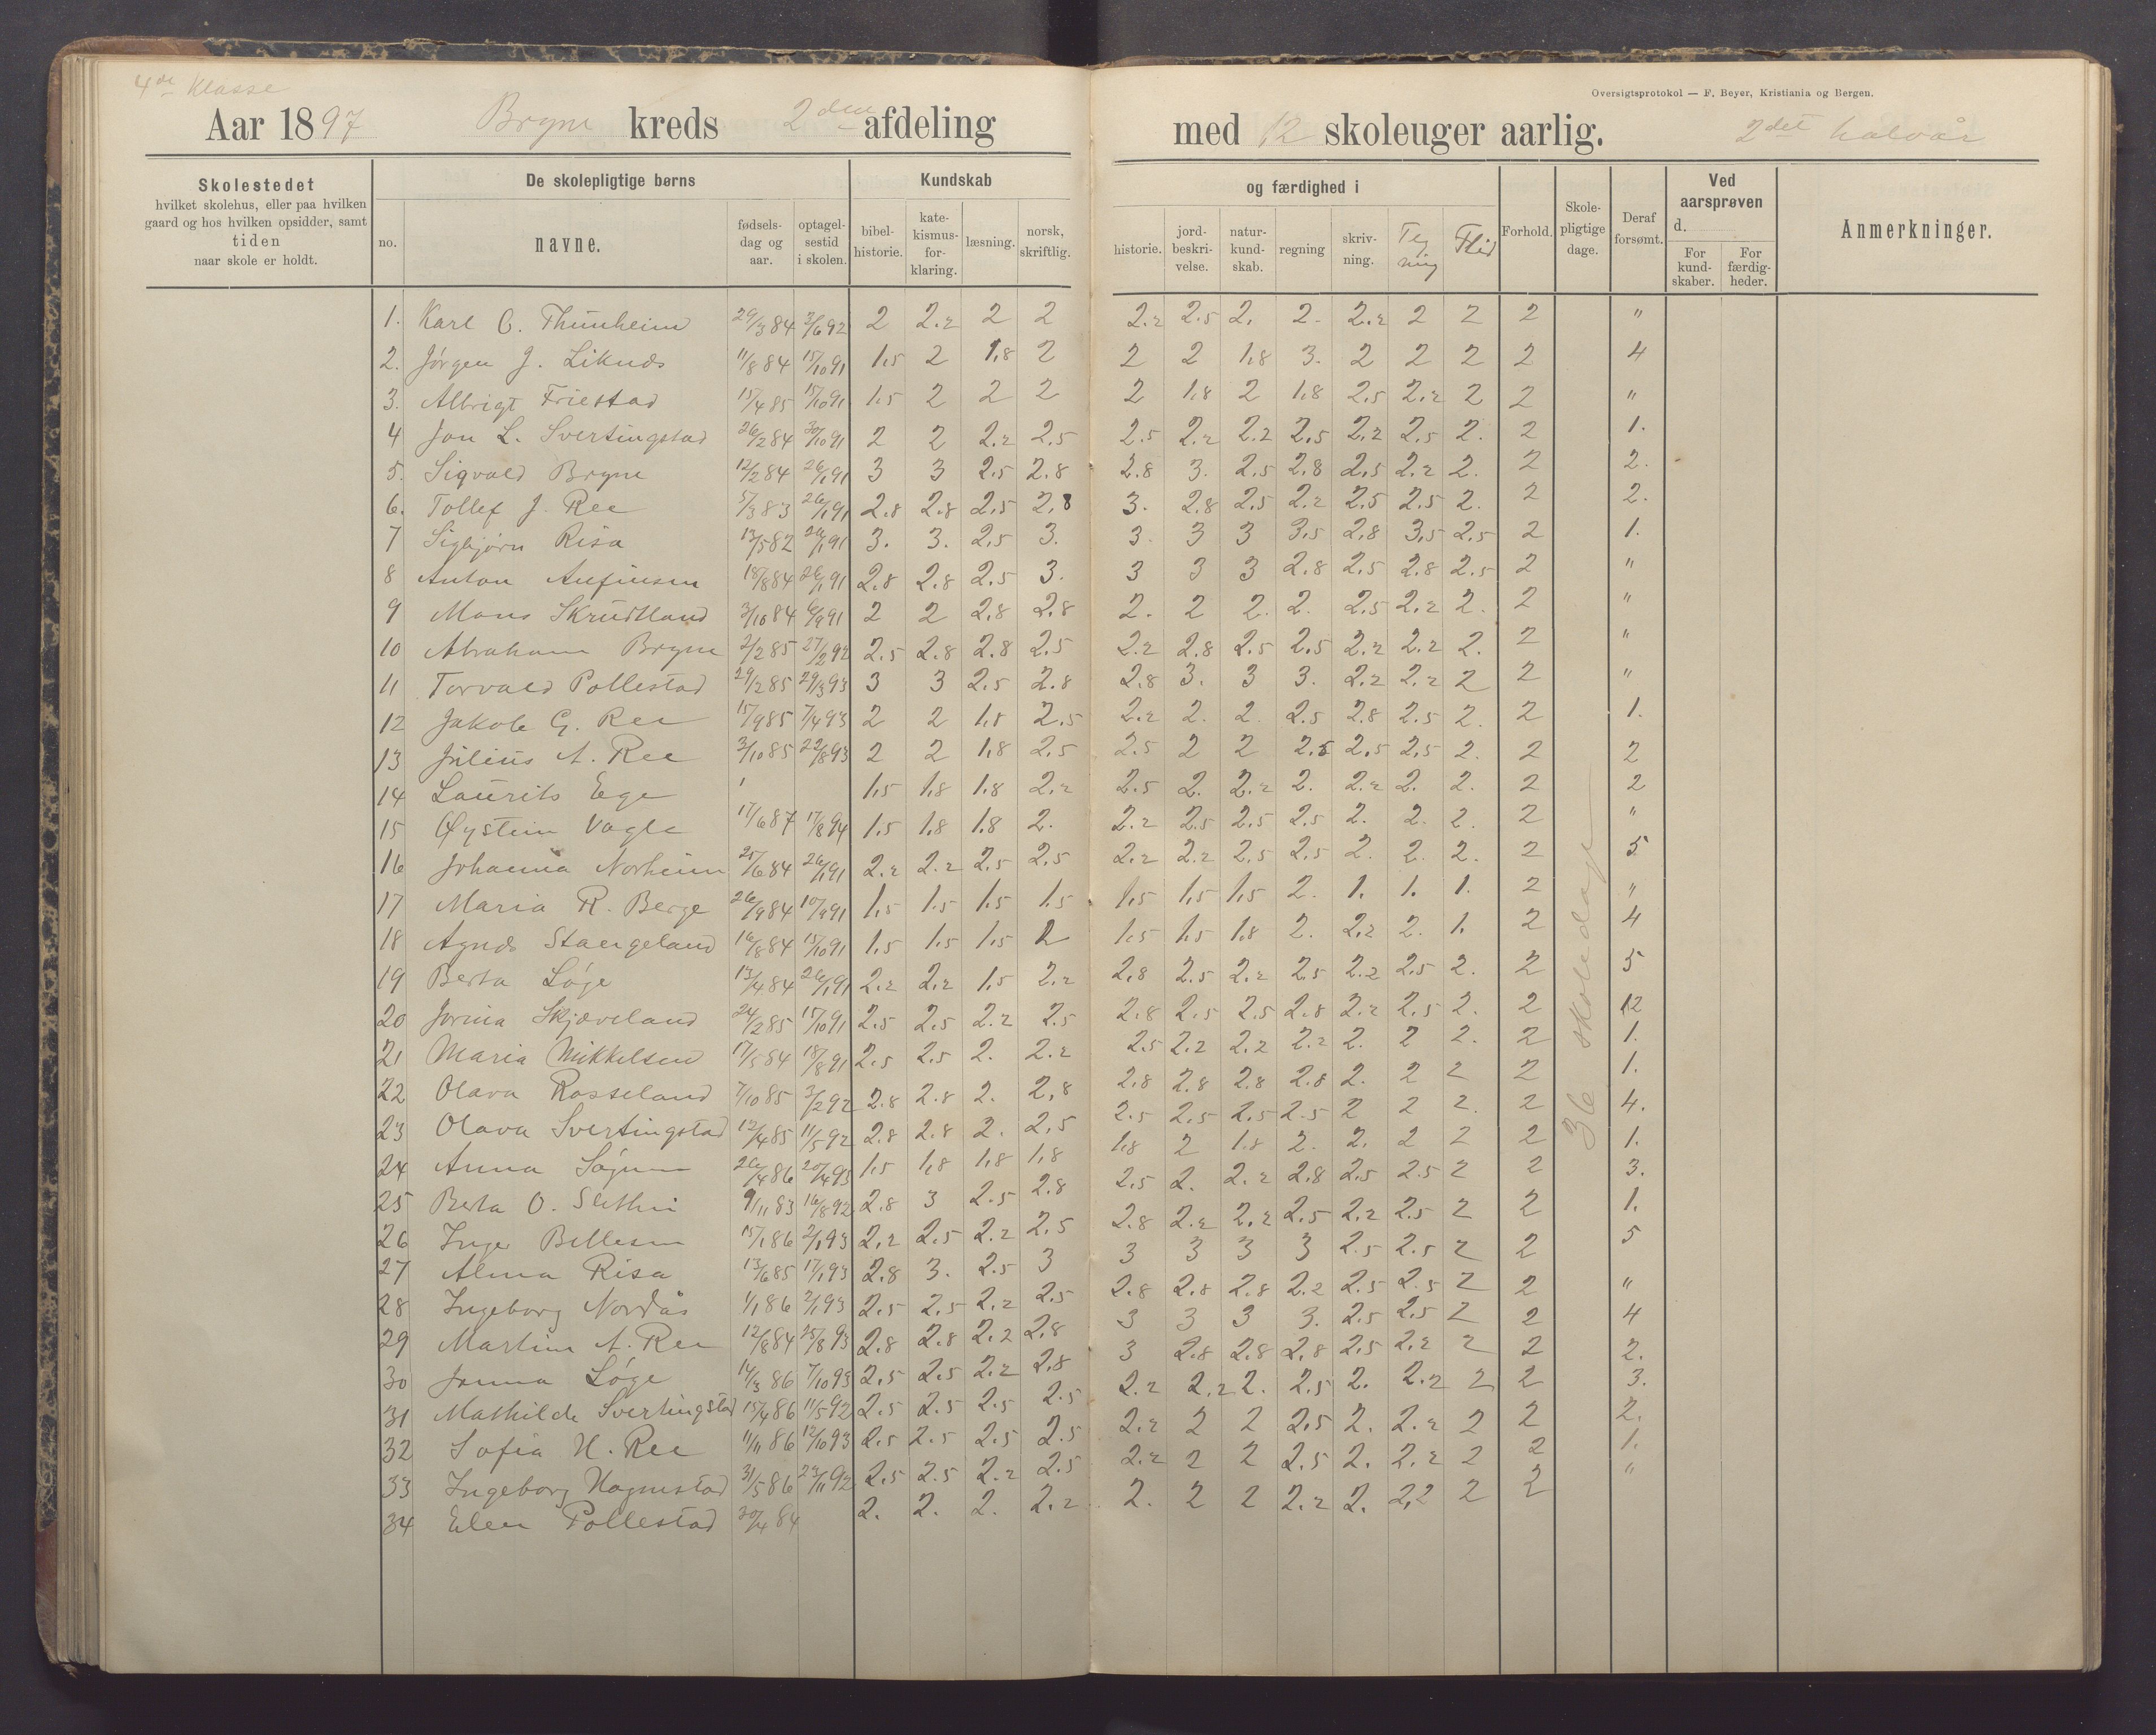 4de Klasse
Oversigtsprotokol — F. Beyer, Kristiania og Bergen.
Aar 1897 Bryne kreds 2den afdeling med 12 skoleuger aarlig. 2det halvår
Skolestedet
hvilket skolehus, eller paa hvilken
gaard og hos hvilken opsidder, samt
tiden
naar skole er holdt.
De skolepligtige børns
no.
navne.
fødsels-
dag og
aar.
optagel-
sestid
i skolen.
Kundskab
bibel-
historie.
kate-
kismus-
for-
klaring.
læsning.
norsk,
skriftlig.
og færdighed i
historie.
jord-
beskri-
velse.
natur-
kund-
skab.
regning
skriv-
ning.
Teg
ning
Flid
Forhold.
Skole-
pligtige
dage.
Deraf
forsømt.
Ved
aarsprøven
d.
For
kund-
skaber.
For
færdig-
heder.
Anmerkninger.
1. Karl C. Thunheim 29/3 84 3/6 92 2 2.2 2 2 2.2 2.5 2. 2. 2.2 2 2 2 "
2. Jørgen J. Liknes 11/8 84 15/10 91 1.5 2 1.8 2 2 2 1.8 3. 2 2 2 2 4
3. Albrigt Friestad 15/4 85 15/10 91 1.5 2 2 2 2 1.8 2 1.8 2.5 2.2 2 2 "
4 Jon L. Svertingstad 26/2 84 30/10 91 2 2 2.2 2.5 2.5 2.2 2.2 2.5 2.2 2.5 2. 2 1.
5. Sigvald Bryne 12/2 84 26/1 91 3 3 2.5 2.8 2.8 3. 2.5 2.8 2.5 2.2 2. 2 2.
6. Tollef J. Ree 5/3 83 26/1 91 2.8 2.8 2.5 2.8 3. 2.8 2.5 2.2 2.5 2.5 2. 2 2.
7 Sigbjørn Risa 13/5 82 26/1 91 3. 3. 2.5 3. 3. 3 3 3.5 2.8 3.5 2.5 2 1.
8 Anton Aufinsen 18/8 84 26/1 91 2.8 2.8 2.5 3. 3 3 3 2.8 2.5 2.8 2.5 2 "
9 Mons Skrudland 3/10 84 6/9 91 2 2 2.8 2.8 2. 2 2. 2. 2.5 2.2 2. 2 "
10 Abraham Bryne 2/2 85 27/2 92 2.5 2.8 2.8 2.5 2.2 2.8 2.5 2.5 2.2 2.2 2. 2 "
11 Torvald Pollestad 29/2 85 29/3 93 3 3 2.5 2.8 2.8 3. 3 3. 2.2 2.2 2 2 "
12 Jakob G. Ree 15/9 85 7/4 93 2 2 1.8 2.5 2.2 2. 2. 2.5 2.8 2.5 2. 2 1.
13 Julius A. Ree 3/10 85 22/8 93 2 2 1.8 2.5 2.5 2 2 2.5 2.5 2.5 2. 2 2
14 Laurits Ege 1.5 1.8 1.8 2.2 2.5 2. 2.2 2. 2.2 2. 2. 2 2
15 Øystein Vagle 17/6 87 17/8 94 1.5 1.8 1.8 2. 2.2 2.5 2.5 2.5 2. 2. 2. 2 "
16 Johanna Norheim 25/6 84 26/1 91 2.2 2.2 2.5 2.5 2.2 2.2 2.5 2.5 2. 2. 2. 2 5
17 Maria R. Berge 26/9 84 10/9 91 1.5 1.5 1.5 1.5 1.5 1.5 1.5 2. 1. 1. 1. 2 "
18 Agnes Stangeland 16/8 84 15/10 91 1.5 1.5 1.5 2 1.5 1.5 1.8 2. 2.2 2. 1. 2 4
19 Berta Løge 13/4 84 26/1 91 2.2 2.2 1.5 2.2 2.8 2.5 2.2 2.5 2.2 2.5 2. 2 5
20 Jorina Skjæveland 24/2 85 15/10 91 2.5 2.5 2.2 2.5 2.8 2.5 2.5 2.8 2.2 2.5 2. 2 12
21 Maria Mikkelsen 17/5 84 18/8 91 2.5 2.5 2. 2.2 2.5 2.2 2.2 2.2 2. 2 2. 2 1.
22 Olava Rosseland 7/10 85 3/2 92 2.8 2.8 2. 2.8 2.8 2.8 2.8 2.8 2. 2 2 2 1.
23 Olava Svertingstad 12/4 85 11/5 92 2.8 2.8 2. 2.5 2.5 2.5 2.5 2.5 2 2 2. 2 4.
24 Anna Søgnen 26/4 86 20/4 93 1.5 1.8 1.8 1.8 1.8 2 1.8 2. 2. 2 2 2 1.
25 Berta O. Slethei 9/11 83 16/8 92 2.8 3 2.5 2.8 2.5 2. 2.2 2.8 2.5 2.5 2 2 3.
26 Inger Bellesen 15/1 86 2/1 93 2.2 2.5 2.2 2.5 2.8 2.2 2.2 2.5 2.2 2.5 2 2 1.
27 Alma Risa 13/6 85 17/1 93 2.8 3. 2.5 3 3 3 3 3 2.5 2.5 2 2 5
28 Ingeborg Nordås 1/1 86 2/1 93 2.5 2.5 2.2 2.5 2.8 2.8 2.8 2.2 2.5 2.5 2 2 "
29 Martine A. Ree 12/8 84 25/8 93 2.8 2.8 2.2 2.8 3 3 3 3. 2.5 2.5 2 2 4
30 Jonna Løge 14/3 86 7/10 93 2.5 2.5 2.2 2.8 3 2.8 2.8 2.8 2.5 2.2 2 2 2.
31 Mathilde Svertingstad 15/4 86 11/5 92 2.5 2.5 2.5 2.5 2.2 2.2 2. 2.5 2. 2.2 2 2 3.
32 Sofia H. Ree 11/11 86 12/10 93 2.5 2.5 2.5 2.5 2.2 2 2 2.5 2. 2.2 2 2 2.
33 Ingeborg Hognestad 31/5 86 24/11 92 2.5 2.5 2.2 2.5 2.2 2 2 2.5 2. 2.2 2 2 1.
34 Elen Pollestad 30/4 84 2. 2. 2. 2.2 2. 2 2 2.2 2. 2.2 2 2 "
36 skoledage